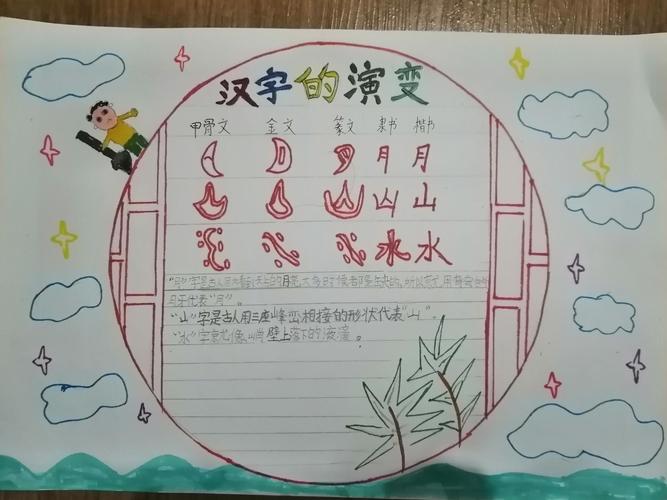 汉字的演变
甲骨文 金文 篆文 隶书 楷书
月 月
山 山
水 水
"月"字是古人因为看到天上的月亮,大多时候都是缺的,所以
月子代表"月"。
"山"字是古人用三座峰峦相接的形状代表"山"。
"水"字像峭壁上落下的液滴。